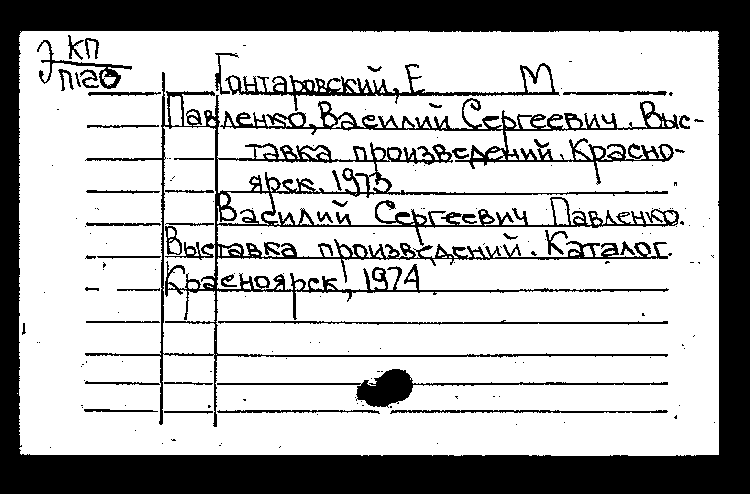 КП
П120
Гонтаровский, Е М
Павленко, Василий Сергеевич. Выс-
тавка произведений. Красно-
ярск. 1973.
Василий Сергеевич Павленко.
Выставка произведений. Каталог.
Красноярск, 1974